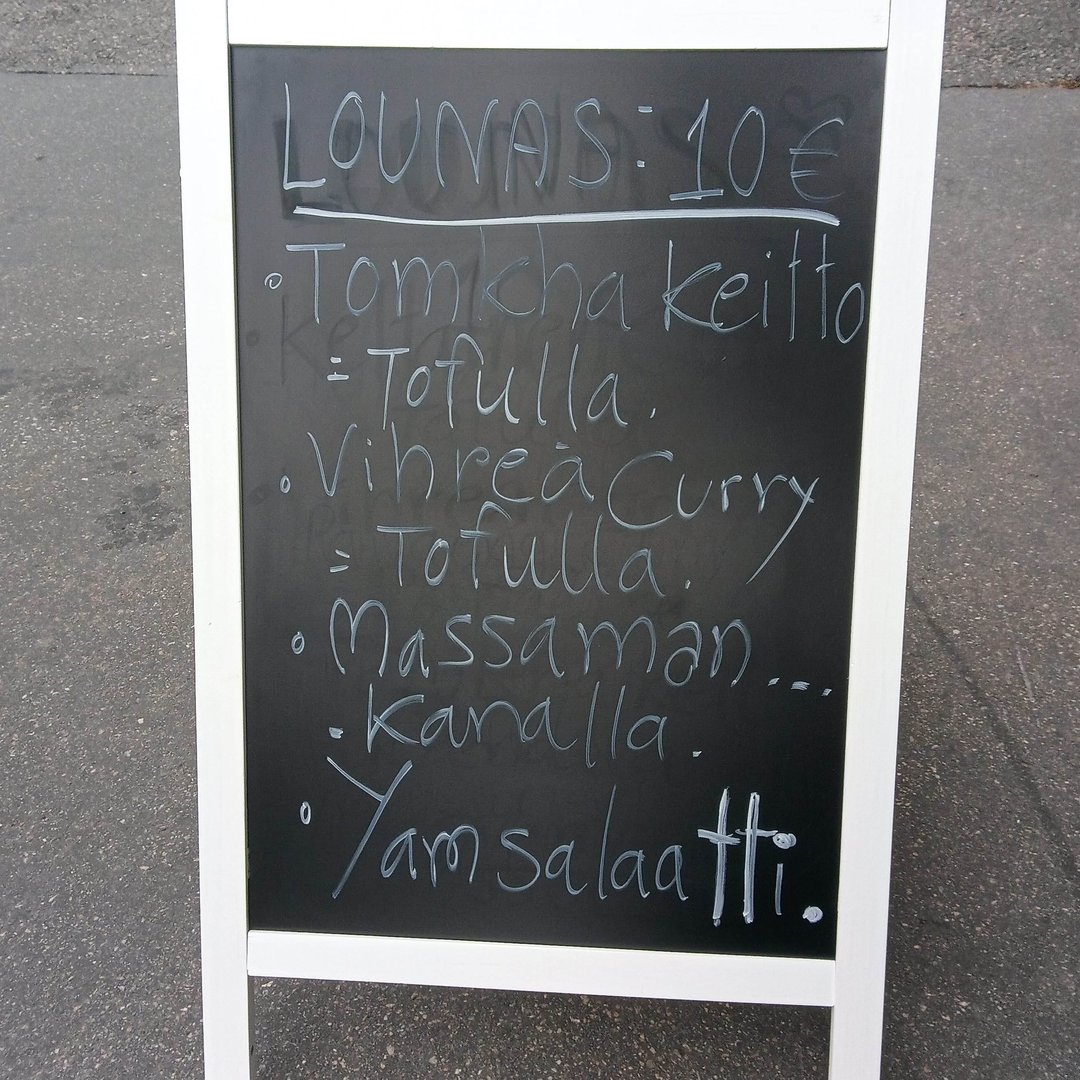 LOUNAS: 10 €
Tomkha keitto
= Tofulla.
Vihreä Curry
= Tofulla.
Massaman...
- Kanalla.
Yam salaatti.